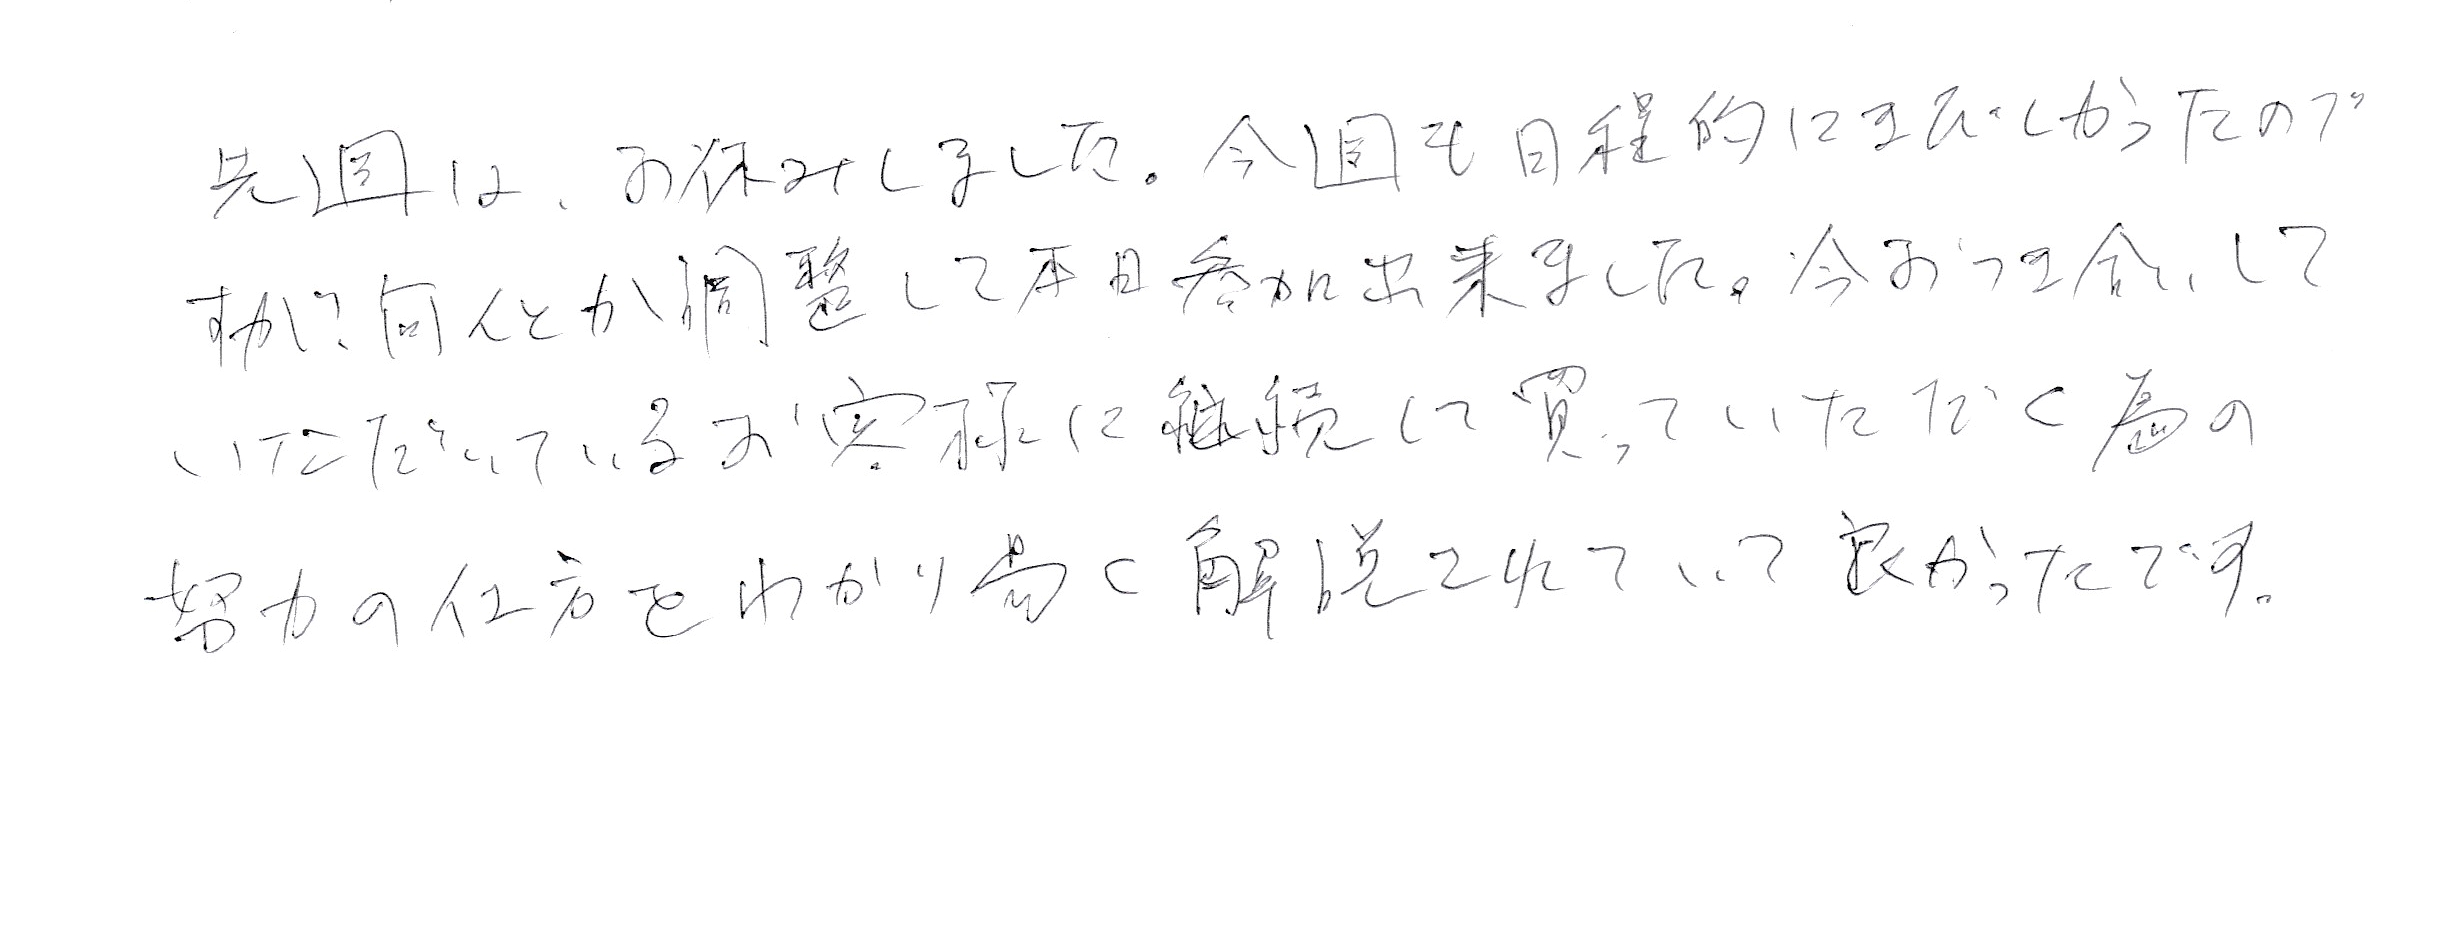 先週は、お休みしました。今週も日程的にきびしかったので
すが、何んとか調整して本日参加出来ました。今おつき合いして
いただいているお客様に継続して買っていただく為の
努力の仕方をわかり易く解説されていて良かったです。